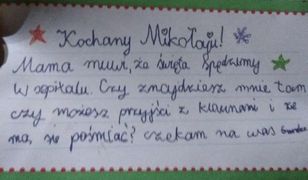 Kochany Mikołaju!
Mama mówi, że święta spędzimy
w szpitalu. Czy znajdziesz mnie tam
czy możesz przyjść z klaunami i ze
mną się pośmiać? Czekam na was